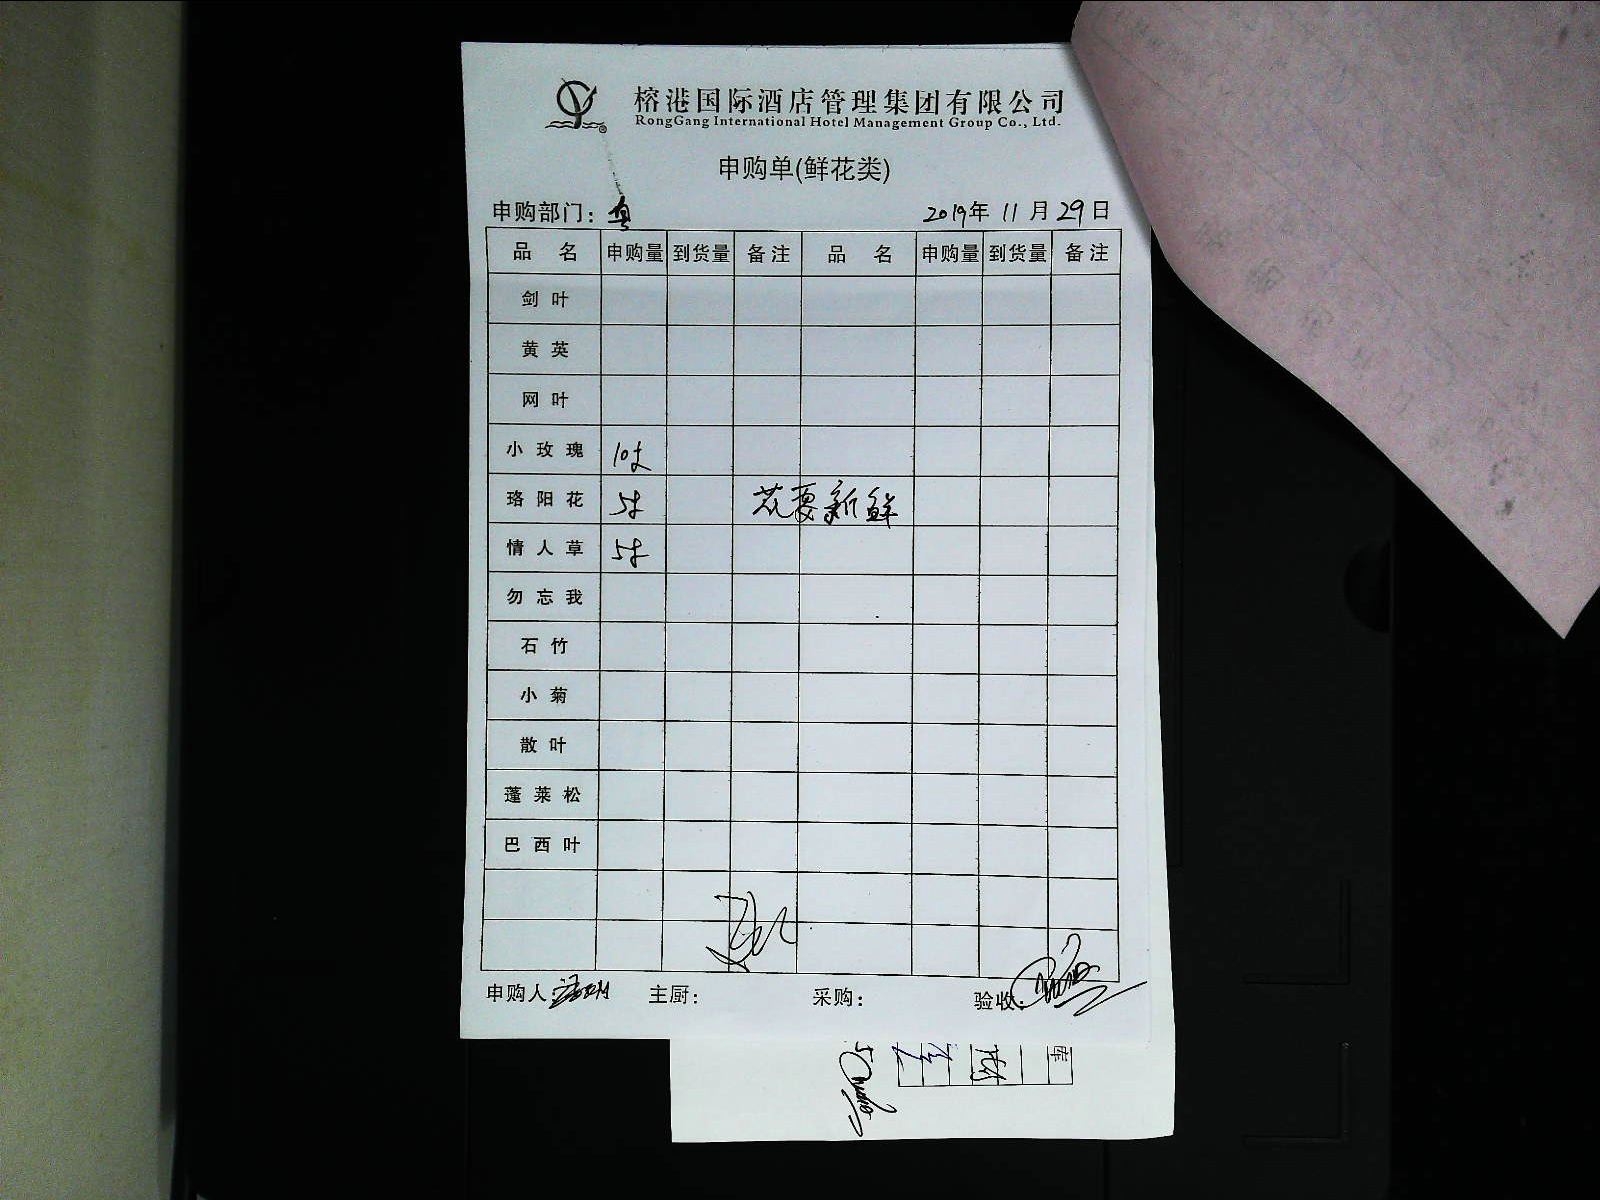 榕港国际酒店管理集团有限公司
RongGang International Hotel Management Group Co., Ltd.
申购单(鲜花类)
申购部门: 2019年 11月 29日
品 名 申购量 到货量 备注 品 名 申购量 到货量 备注
剑叶
黄英
网叶
小玫瑰 10扎
珞阳花 5扎 花要新鲜
情人草 5扎
勿忘我
石竹
小菊
散叶
蓬莱松
巴西叶
申购人: 主厨: 采购: 验收:
库